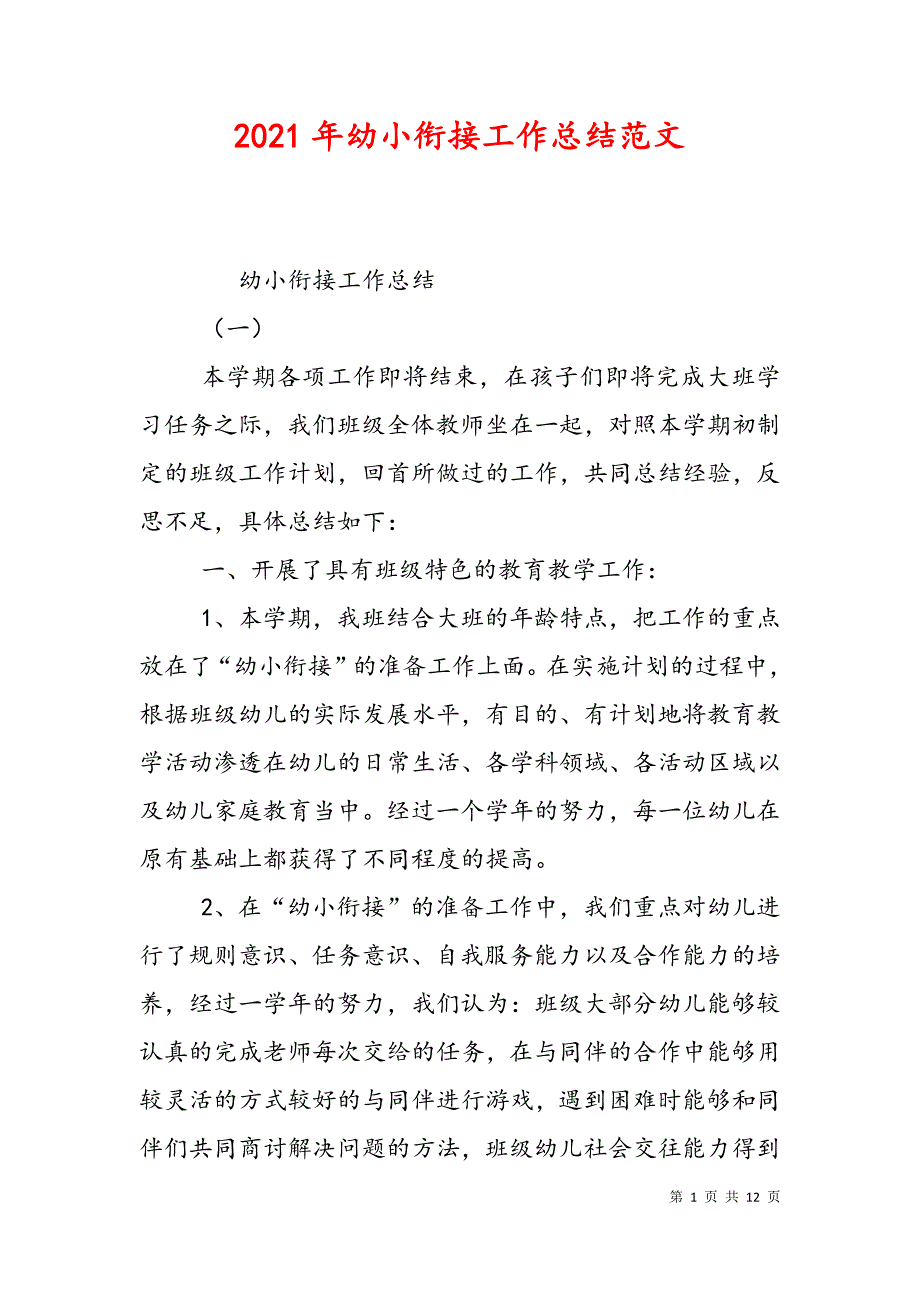 2021 年幼小衔接工作总结范文
幼小衔接工作总结
（一）
本学期各项工作即将结束，在孩子们即将完成大班学
习任务之际，我们班级全体教师坐在一起，对照本学期初制
定的班级工作计划，回首所做过的工作，共同总结经验，反
思不足，具体总结如下：
一、开展了具有班级特色的教育教学工作：
1、本学期，我班结合大班的年龄特点，把工作的重点
放在了“幼小衔接”的准备工作上面。在实施计划的过程中，
根据班级幼儿的实际发展水平，有目的、有计划地将教育教
学活动渗透在幼儿的日常生活、各学科领域、各活动区域以
及幼儿家庭教育当中。经过一个学年的努力，每一位幼儿在
原有基础上都获得了不同程度的提高。
2、在“幼小衔接”的准备工作中，我们重点对幼儿进
行了规则意识、任务意识、自我服务能力以及合作能力的培
养，经过一学年的努力，我们认为：班级大部分幼儿能够较
认真的完成老师每次交给的任务，在与同伴的合作中能够用
较灵活的方式较好的与同伴进行游戏，遇到困难时能够和同
伴们共同商讨解决问题的方法，班级幼儿社会交往能力得到
第 1 页 共 12 页